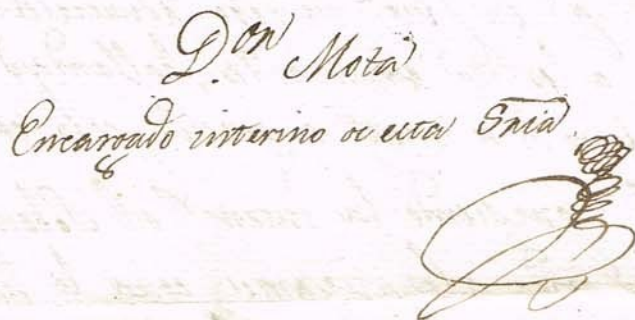 Don Mota
Encargado interino de esta Sría